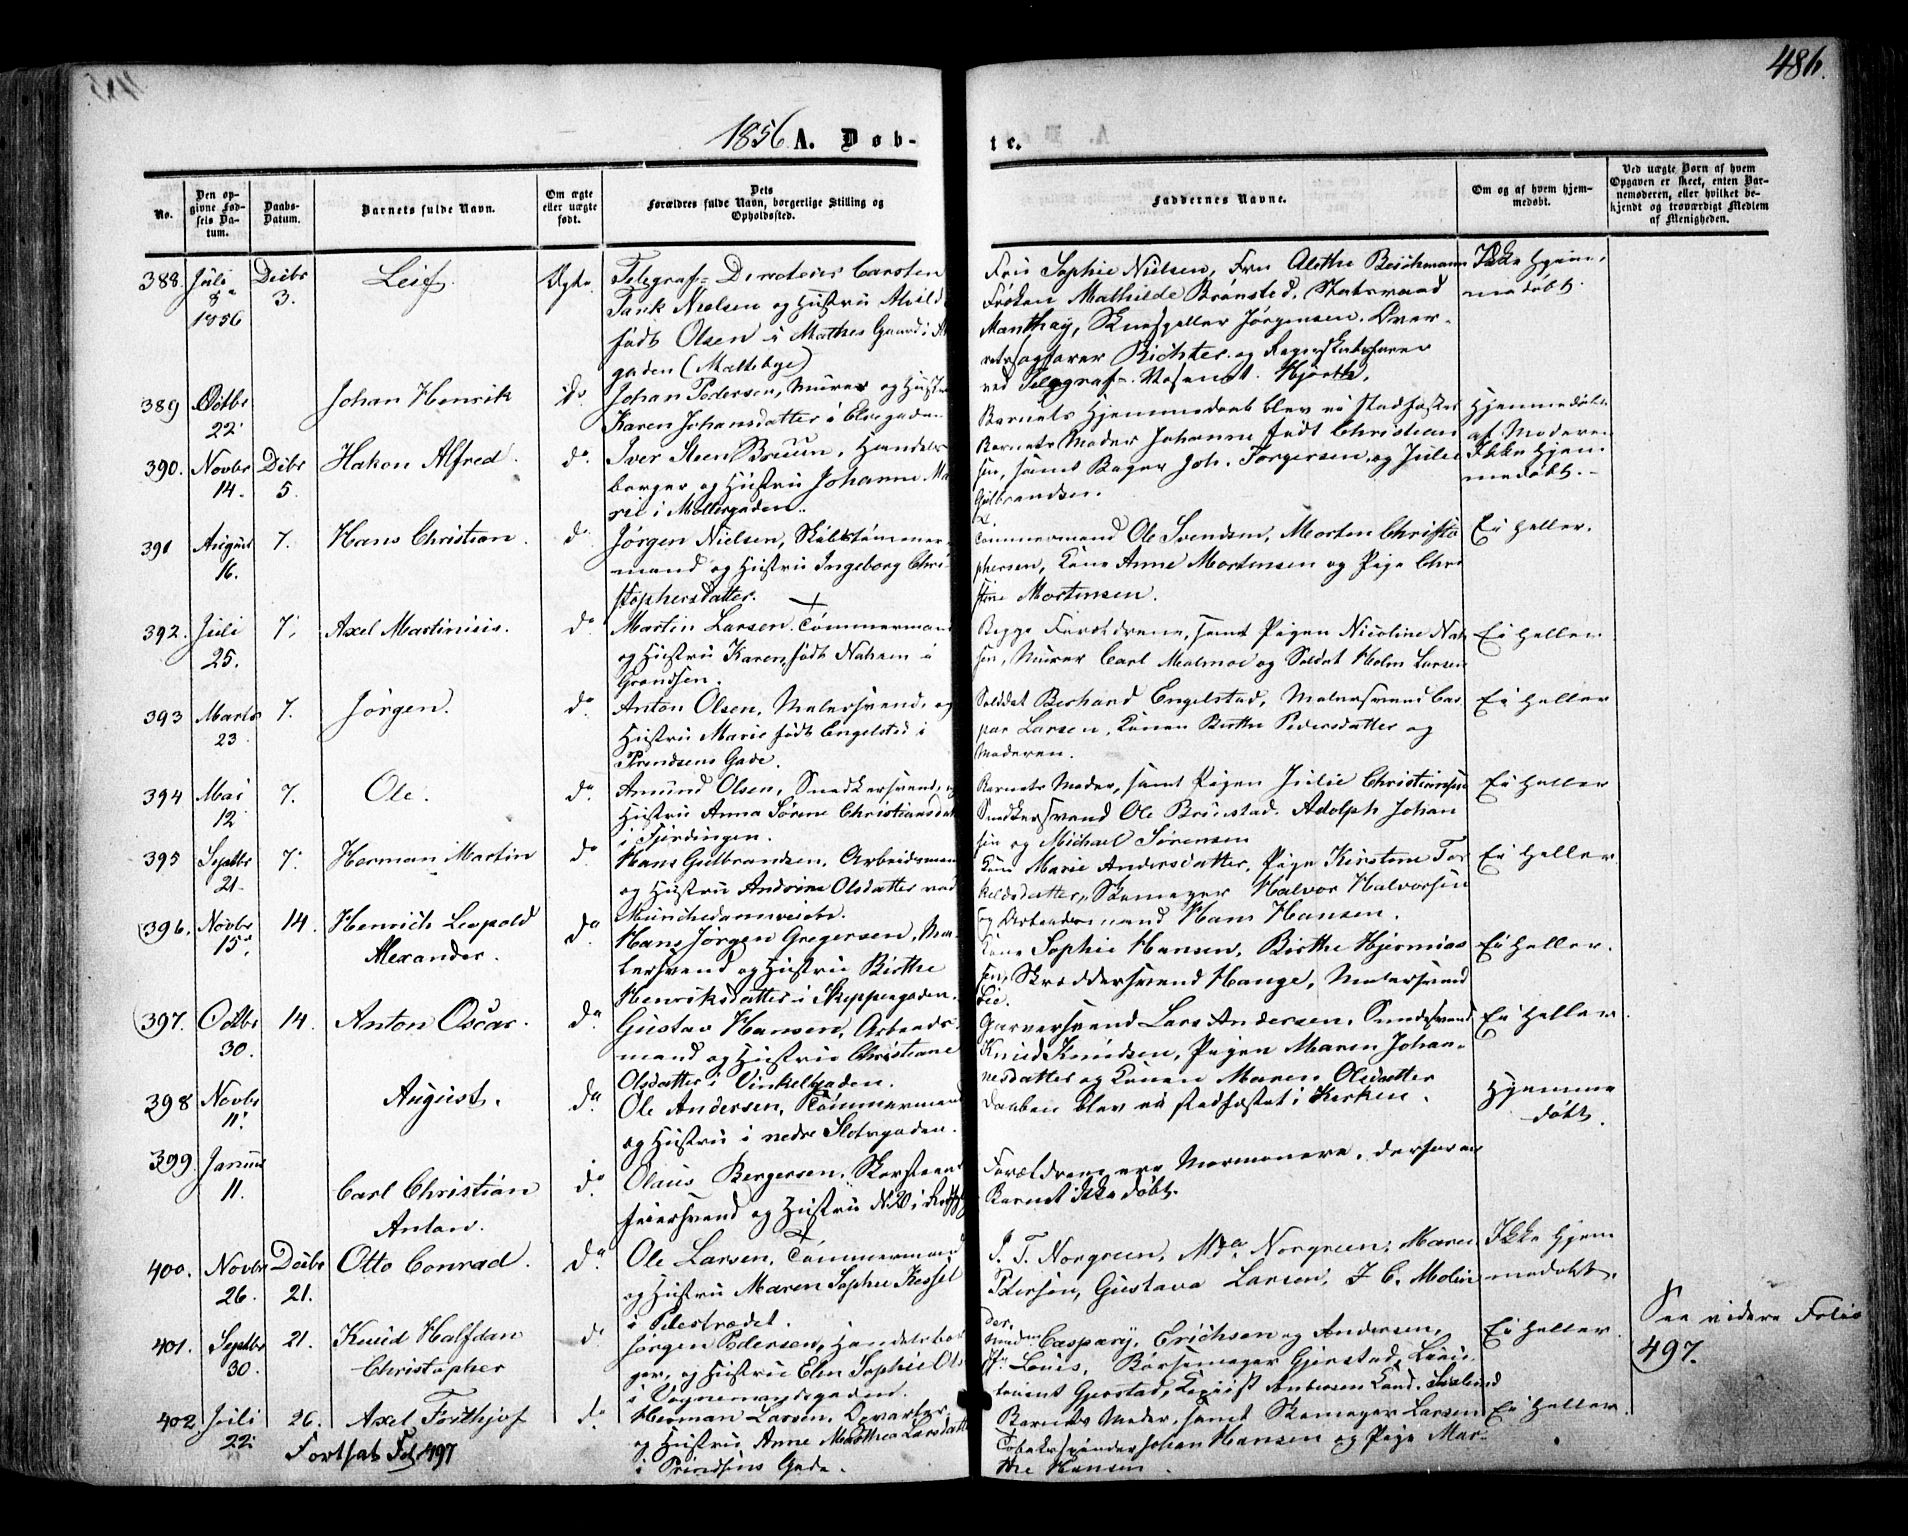 486.
1856 A. Døb-
te.
No.
Den opgivne Fødsels Datum.
Daabs-Datum.
Barnets fulde Navn.
Om ægte eller uægte født.
Dets Forældres fulde Navn, borgerlige Stilling og Opholdssted.
Faddernes Navne.
Om og af hvem hjemmedøbt.
Ved uægte Børn af hvem Opgaven er skeet, enten Barnemoderen, eller hvilket bekjendt og troværdigt Medlem af Menigheden.
388. Juli 8. 1856 Decbr 3. Leif. Ægte.
Telegraf-Directeur Carsten
Tank Nielsen og Hustru Alvild
født Olsen i Mathes Gaard i
gaden (Maltheby)
Fru Sophie Nielsen, Fru Alethe Beichmann
Frøken Mathilde Brønsted, Statsraad
Manthey, Jørgensen. Over-
retssagfører Richter og Regnskabsfører
ved Telegraf- Hjorth.
Ikke hjem-
medøbt.
389 Octbr 22. Johan Henrik do
Johan Pedersen, Murer og Hustru
Karen Johansdatter i Elvegaden
Barnets Hjemmedaab blev ei stadfæstet
Hjemmedøbt
af Moderen
390. Novbr 14. Decbr 5. Hakon Alfred. do.
Iver Steen Bruun, Handels-
borger og Hustru Johanne Ma-
rie i Møllergaden.
Barnets Moder Johanne født Christian
sen, samt Bager Joh. Torgersen og Julie
Gulbrandsen.
Ikke hjem-
medøbt.
391 August 16. 7. Hans Christian. do
Jørgen Nielsen, Skibstømmer-
mand og Hustru Ingeborg Chri-
stophersdatter.
Tømmermand Ole Svendsen, Morten Christo
phersen, Kone Anne Mortensen og Pige Chri
stine Mortensen.
Ei heller.
392. Juli 25. 7. Axel Martinius. do
Martin Larsen. Tømmermand
og Hustru Karen, født Nahsen i
Grændsen.
Begge Forældrene, samt Pigen Nicoline Nah
sen, Murer Carl Malmoe og Soldat Holm Larsen
Ei heller
393 Marts 23. 7. Jørgen. do
Anton Olsen, Malersvend, og
Hustru Marie født Engelsted i
Prindsens Gade.
Soldat Berhard Engelstad, Malersvend Cas
par Larsen, Konen Birthe Pedersdatter og
Moderen.
Ei heller
394 Mai 12 7. Ole. do.
Amund Olsen, Snedkersvend, og
Hustru Anna Sørine Christiansdatter
i Fjerdingen.
Barnets Moder, samt Pigen Julie Christiansen
Snedkersvend Ole Bruustad. Adolph Johan
sen og Michael Sørensen
Ei heller
395 Septbr 21. 7. Herman Martin do
Hans Gulbrandsen, Arbeidsmand
og Hustru Andrine Olsdatter ved
Munchedamsveien.
Kone Marie Andersdatter, Pige Kirstine Tor
kelsdatter, Skomager Halvor Halvorsen
og Arbeidsmand Hans Hansen.
Ei heller
396. Novbr 15. 14. Henrich Leopold
Alexander. do
Hans Jørgen Gregersen, Ma-
lersvend og Hustru Birthe
Henriksdatter i Skippergaden.
Kone Sophie Hansen, Birthe Hjermias
sen, Skræddersvend Hauge, Malersvend
Lie.
Ei heller.
397. Octbr 30. 14. Anton Oscar. do
Gustav Hansen, Arbeids-
mand og Hustru Christiane
Olsdatter i Vinkelgaden.
Garversvend Lars Andersen, Smedsvend
Knud Knudsen, Pigen Maren Johan-
nesdatter og Konen Maren Olsdatter
Ei heller.
398 Novbr 11. August. do
Ole Andersen, Tømmermand
og Hustru i nedre Slotsgaden.
Daaben blev ei stadfæstet i Kirken.
Hjemme
døbt.
399. Januar 11. Carl Christian
Anton. do.
Olaus Bergersen, Skorsteens-
feiersvend og Hustru
Forældrene ere Mormonere, derfor er
Barnet ikke døbt.
400. Novbr 26. Decbr 21. Otto Conrad. do
Ole Larsen, Tømmermand
og Hustru Maren Sophie Kessel
i Pilestrædet.
J. T. Norgreen, Mda Norgreen, Maren
Petersen, Gustava Larsen, J. C. Molin
der.
Ikke hjem
medøbt.
401. Septbr 30. 21. Knud Halfdan
Christopher do
Jørgen Pedersen, Handelsbor
ger, og Hustru Elen Sophie Ols
i Vognmandsgaden.
Madm Caspary, Erichsen og Andersen,
Louis, Børsemager Gjerstad, Lieu-
tenant Gjerstad, Kopiist Andersen Cand.
Ei heller.
See videre Folio
497.
402 Juli 22. 26. Axel Frithjof do
Herman Larsen, Opvarter,
og Hustru Anne Marthea Larsdatter
i Prindsens Gade.
Barnets Moder, samt Skomager Larsen
Tobakspinder Johan Hansen og Pige Mar-
the Hansen.
Ei heller.
Fortsat Fol. 497